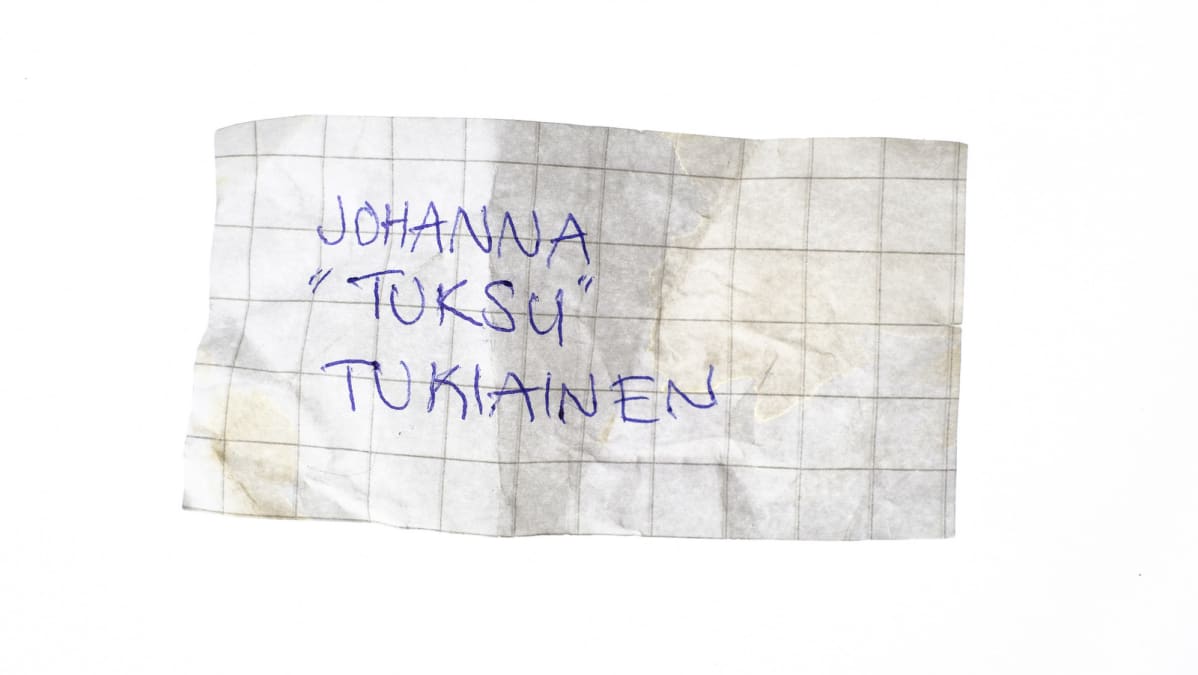 JOHANNA
"TUKSU"
TUKIAINEN